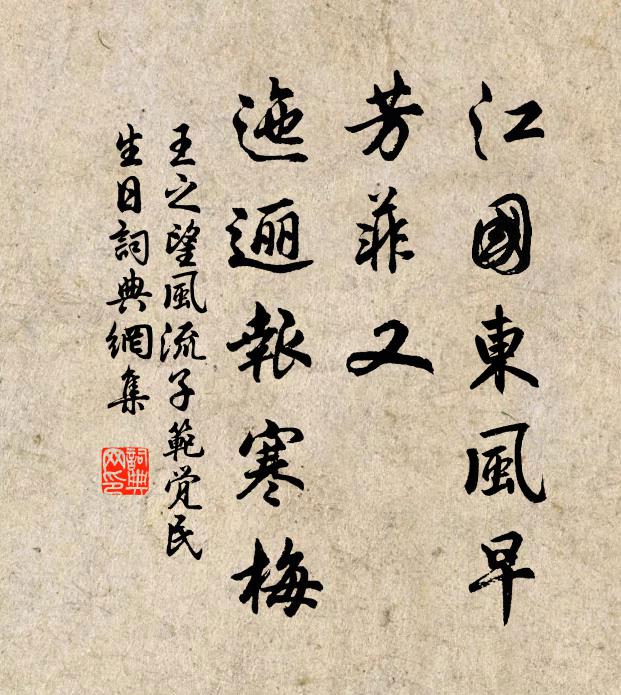 江國東風早
芳菲又
迤逦報寒梅
王之望風流子範覚民
生日詞典網集
詞典
网印